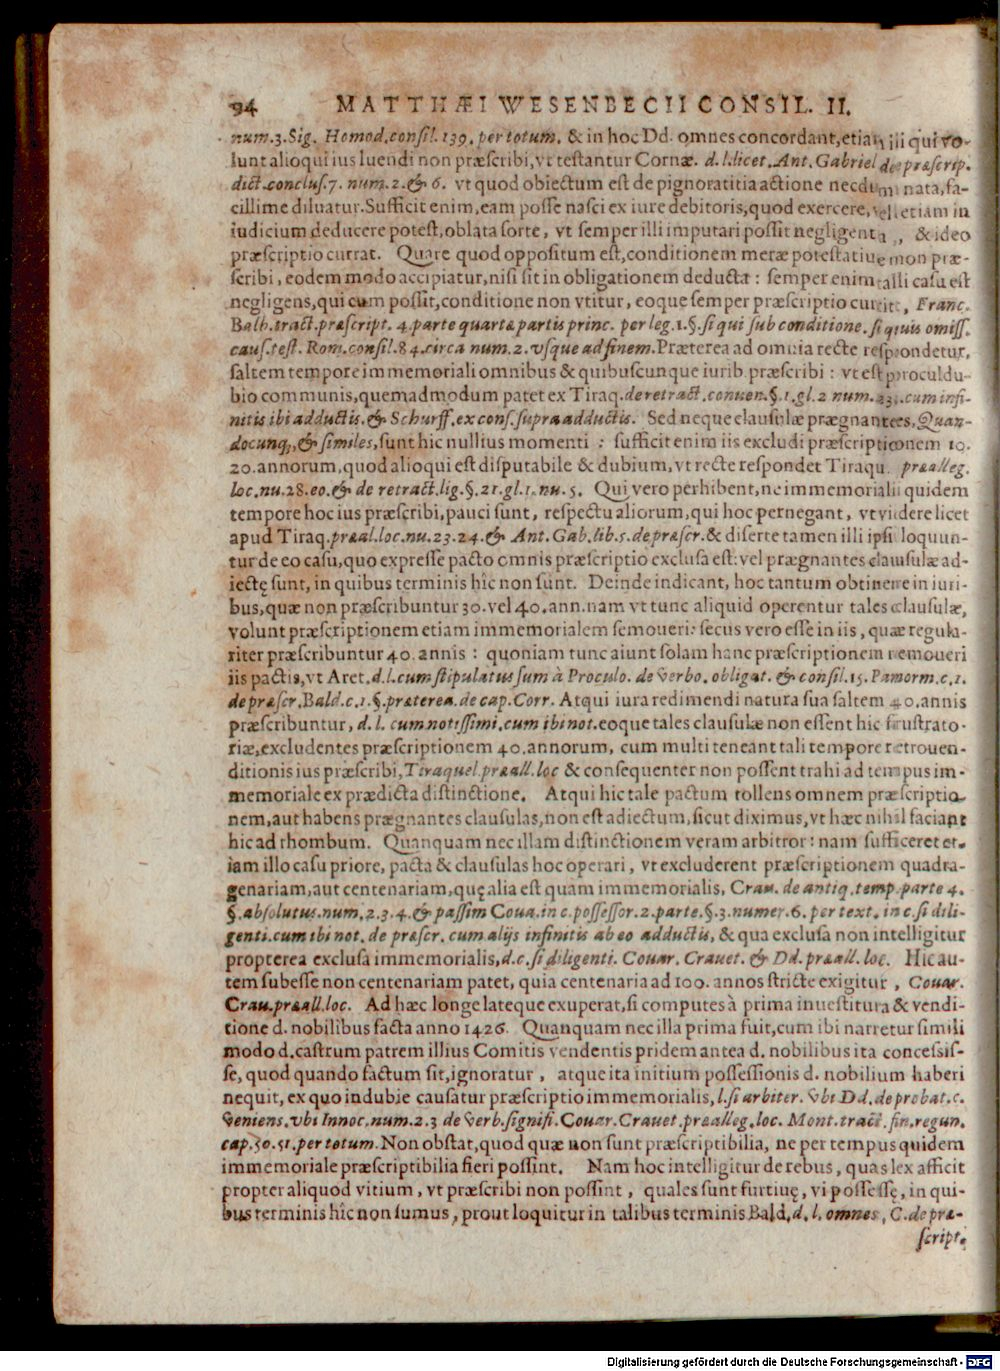 94 MATTHÆI WESENBECII CONSIL. II.
num.3.Sig. Homod.consil.139.per totum. & in hoc Dd. omnes concordant,etiam illi qui vo-
lunt alioqui ius luendi non præscribi,vt testantur Cornæ. d.l.licet. Ant. Gabriel de præscrip.
dict.conclus.7. num.2.& 6. vt quod obiectum est de pignoratitia actione necdum nata,fa-
cillime diluatur.Sufficit enim,eam posse nasci ex iure debitoris,quod exercere,vel etiam in
iudicium deducere potest,oblata sorte, vt semper illi imputari possit negligentia, & ideo
præscriptio currat. Quare quod oppositum est,conditionem meræ potestatiuæ non præ-
scribi, eodem modo accipiatur,nisi sit in obligationem deducta: semper enim tali casu est
negligens,qui cum possit,conditione non vtitur, eoque semper præscriptio currit, Franc.
Balb.tract.præscript. 4.parte quartæ partis princ. per leg.1.§.si qui sub conditione. si quis omiss.
caus.test. Rom.consil.84.circa num.2.vsque ad finem.Præterea ad omnia recte respondetur,
saltem tempore immemoriali omnibus & quibuscunque iurib.præscribi: vt est proculdu-
bio communis,quemadmodum patet ex Tiraq.de retract.conuen.§.1.gl.2 num.23.cum infi-
nitis ibi adductis.& Schurff.ex cons.supra adductis. Sed neque clausulæ prægnantes,Quan-
docunq;,& similes,sunt hic nullius momenti: sufficit enim iis excludi præscriptionem 10.
20.annorum,quod alioqui est disputabile & dubium,vt recte respondet Tiraqu. præalleg.
loc.nu.28.eo.& de retract.lig.§.21.gl.1.nu.5. Qui vero perhibent,ne immemoriali quidem
tempore hoc ius præscribi,pauci sunt, respectu aliorum,qui hoc pernegant, vt videre licet
apud Tiraq.præal.loc.nu.23.24.& Ant.Gab.lib.5.de præscr.& diserte tamen illi ipsi loquun-
tur de eo casu,quo expresse pacto omnis præscriptio exclusa est:vel prægnantes clausulæ ad-
iectę sunt, in quibus terminis hîc non sunt. Deinde indicant, hoc tantum obtinere in iuri-
bus,quæ non præscribuntur 30.vel 40.ann.nam vt tunc aliquid operentur tales clausulæ,
volunt præscriptionem etiam immemorialem semoueri: secus vero esse in iis, quæ regula-
riter præscribuntur 40.annis: quoniam tunc aiunt solam hanc præscriptionem remoueri
iis pactis,vt Aret.d.l.cum stipulatus sum à Proculo. de verbo. obligat. & consil.15. Panorm.c.1.
de præscr.Bald.c.1.§.præterea.de cap.Corr. Atqui iura redimendi natura sua saltem 40.annis
præscribuntur, d.l. cum notissimi.cum ibi not.eoque tales clausulæ non essent hic frustrato-
riæ,excludentes præscriptionem 40.annorum, cum multi teneant tali tempore retrouen-
ditionis ius præscribi,Tiraquel.præall.loc & consequenter non possent trahi ad tempus im-
memoriale ex prædicta distinctione. Atqui hic tale pactum tollens omnem præscriptio-
nem,aut habens prægnantes clausulas,non est adiectum,sicut diximus,vt hæc nihil faciant
hic ad rhombum. Quanquam nec illam distinctionem veram arbitror: nam sufficeret et-
iam illo casu priore, pacta & clausulas hoc operari, vt excluderent præscriptionem quadra-
genariam,aut centenariam,quę alia est quam immemorialis, Crau. de antiq.temp.parte 4.
§.absolutus.num.2.3.4.& passim Coua.in c.possessor.2.parte.§.3.numer.6. per text. in c.si dili-
genti.cum ibi not. de præscr. cum alijs infinitis ab eo adductis, & qua exclusa non intelligitur
propterea exclusa immemorialis,d.c.si diligenti. Couar. Crauet. & Dd.præall.loc. Hic au-
tem subesse non centenariam patet, quia centenaria ad 100. annos stricte exigitur, Couar.
Crau.præall.loc. Ad hæc longe lateque exuperat,si computes à prima inuestitura & vendi-
tione d. nobilibus facta anno 1426. Quanquam nec illa prima fuit,cum ibi narretur simili
modo d.castrum patrem illius Comitis vendentis pridem antea d. nobilibus ita concessis-
se, quod quando factum sit,ignoratur, atque ita initium possessionis d. nobilium haberi
nequit, ex quo indubie causatur præscriptio immemorialis, l.si arbiter. vbi Dd.de probat.c.
veniens.vbi Innoc.num.2.3 de verb.signifi.Couar.Crauet.præalleg.loc. Mont.tract.fin.regun.
cap.50.51.per totum.Non obstat,quod quæ non sunt præscriptibilia, ne per tempus quidem
immemoriale præscriptibilia fieri possint. Nam hoc intelligitur de rebus, quas lex afficit
propter aliquod vitium, vt præscribi non possint, quales sunt furtiuę, vi possessę, in qui-
bus terminis hîc non sumus, prout loquitur in talibus terminis Bald.d.l.omnes, C.de præ-
script.
Digitalisierung gefördert durch die Deutsche Forschungsgemeinschaft - DFG